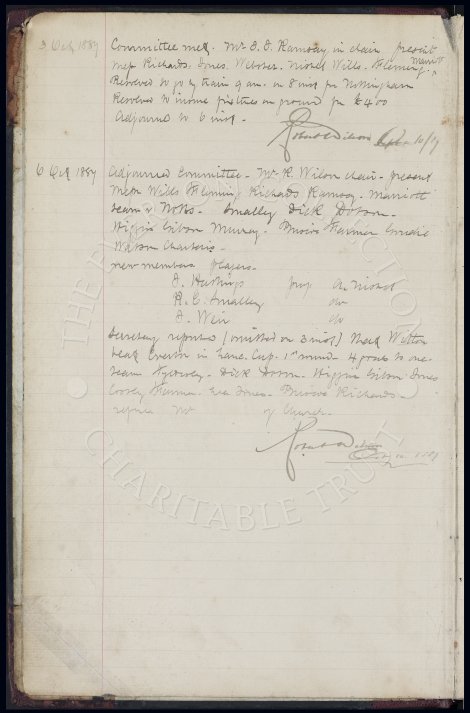 3 Oct 1887 Committee met. Mr J. J. Ramsay in chair present
Messrs Richards. Jones. Webster. Nisbet Wills. Fleming Marriott
Resolved to go by train 9 am. on 8 inst for Nottingham
Resolved to insure fixtures on ground for £400
Adjourned to 6 inst.
Robert Wilson 10/87
6 Oct 1887 Adjourned Committee. Mr R Wilson chair. present
Messrs Wills Fleming Richards Ramsay. Marriott
Team v Notts. Smalley Dick Dobson.
Higgins Gibson Murray. Briscoe Farmer Goudie
Watson Charters.
new members players.
J. Hastings prop A. Nisbet
R. E. Smalley do
J. Weir do
Secretary reported (omitted on 3 inst) that Witton
beat Everton in Lanc. Cup. 1st round 4 goals to one.
Team Dick Dobson. Higgins Gibson Jones
Farmer. Geo Jones. Briscoe Richards.
referee Mr of Church.
Robert Wilson
1887
THE EVERTON COLLECTION
CHARITABLE TRUST